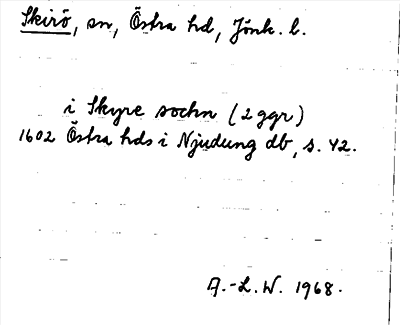 Skirö, sn, Östra hd, Jönk. l.
i Skyre sochn (2 ggr)
1602 Östra hds i Njudung db, s. 42.
A.-L. W. 1968.